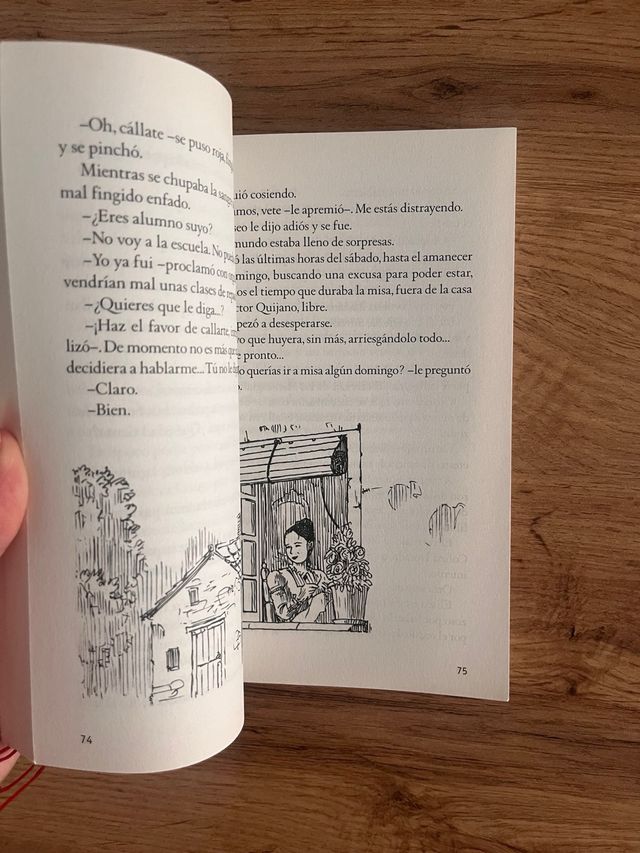 –Oh, cállate –se puso roja,
y se pinchó.
Mientras se chupaba la
mal fingido enfado.
–¿Eres alumno suyo?
–No voy a la escuela. No
–Yo ya fui –proclamó con
vendrían mal unas clases de
–¿Quieres que le diga...?
–¡Haz el favor de callarte,
lizó–. De momento no es más
decidiera a hablarme... Tú no
–Claro.
–Bien.
74
cosiendo.
vete –le apremió–. Me estás distrayendo.
le dijo adiós y se fue.
mundo estaba lleno de sorpresas.
las últimas horas del sábado, hasta el amanecer
buscando una excusa para poder estar,
el tiempo que duraba la misa, fuera de la casa
Quijano, libre.
a desesperarse.
que huyera, sin más, arriesgándolo todo...
pronto...
querías ir a misa algún domingo? –le preguntó
75